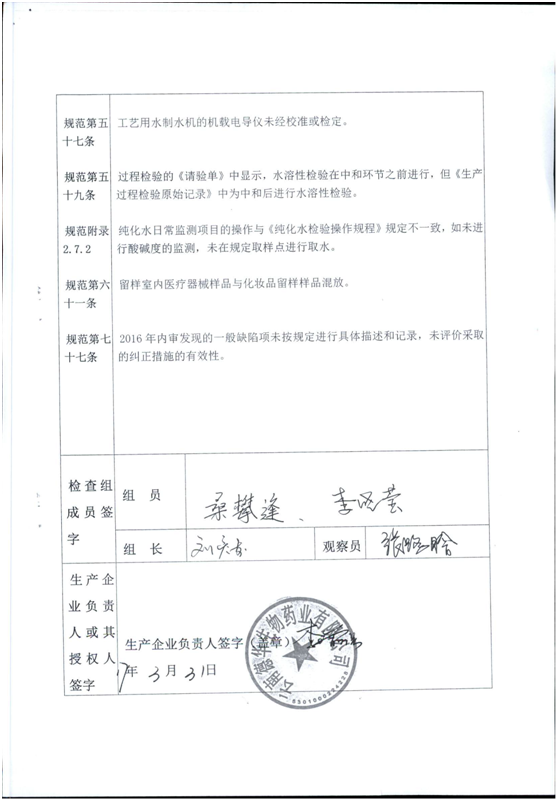 规范第五
十七条
工艺用水制水机的机载电导仪未经校准或检定。
规范第五
十九条
过程检验的《请验单》中显示，水溶性检验在中和环节之前进行，但《生产
过程检验原始记录》中为中和后进行水溶性检验。
规范附录
2.7.2
纯化水日常监测项目的操作与《纯化水检验操作规程》规定不一致，如未进
行酸碱度的监测，未在规定取样点进行取水。
规范第六
十一条
留样室内医疗器械样品与化妆品留样样品混放。
规范第七
十七条
2016年内审发现的一般缺陷项未按规定进行具体描述和记录，未评价采取
的纠正措施的有效性。
检查组
成员签
字
组 员
桑攀逢、李
组 长
刘
观察员
张
生产企
业负责
人或其
授权人
签字
生产企业负责人签字（盖章）
17年3月31日
云南德华生物药业有限公司